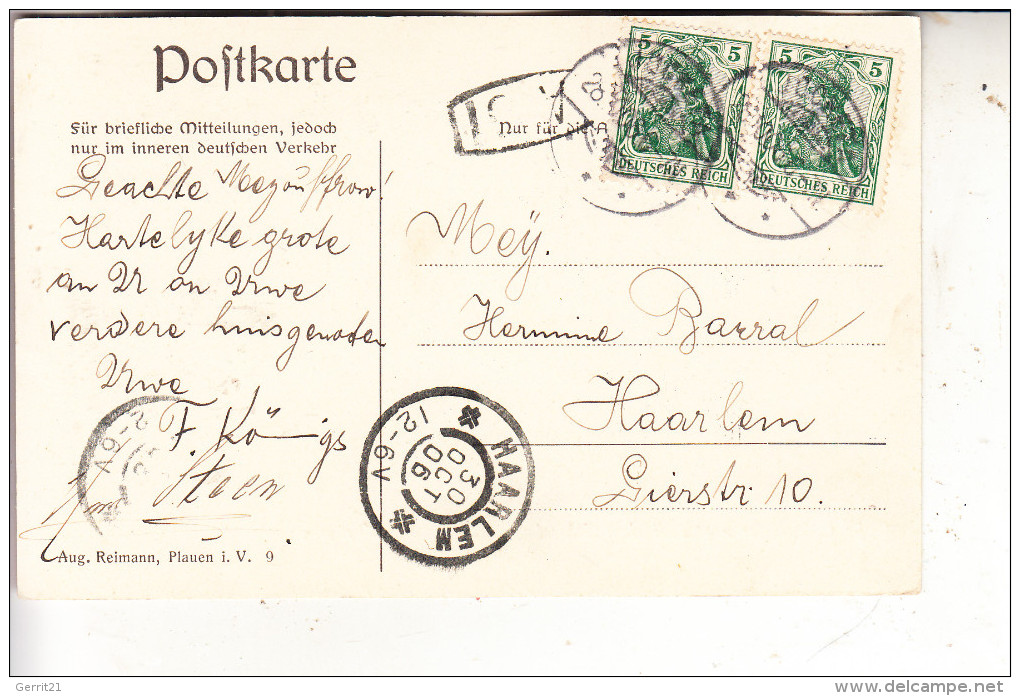 Postkarte
Für briefliche Mitteilungen, jedoch
nur im inneren deutschen Verkehr
Nur für die
5 5
DEUTSCHES REICH
5 5
DEUTSCHES REICH
Geachte Mejouffrow
Hartelyke grote
an U en Uwe
verdere huisgenoten
Uwe
F. Königs
Steen
Aug. Reimann, Plauen i. V. 9
Mej.
Hermine Barral
Haarlem
Gierstr. 10.
HAARLEM
30 OCT 06
12-6V
Gerrit21
delcampe.net